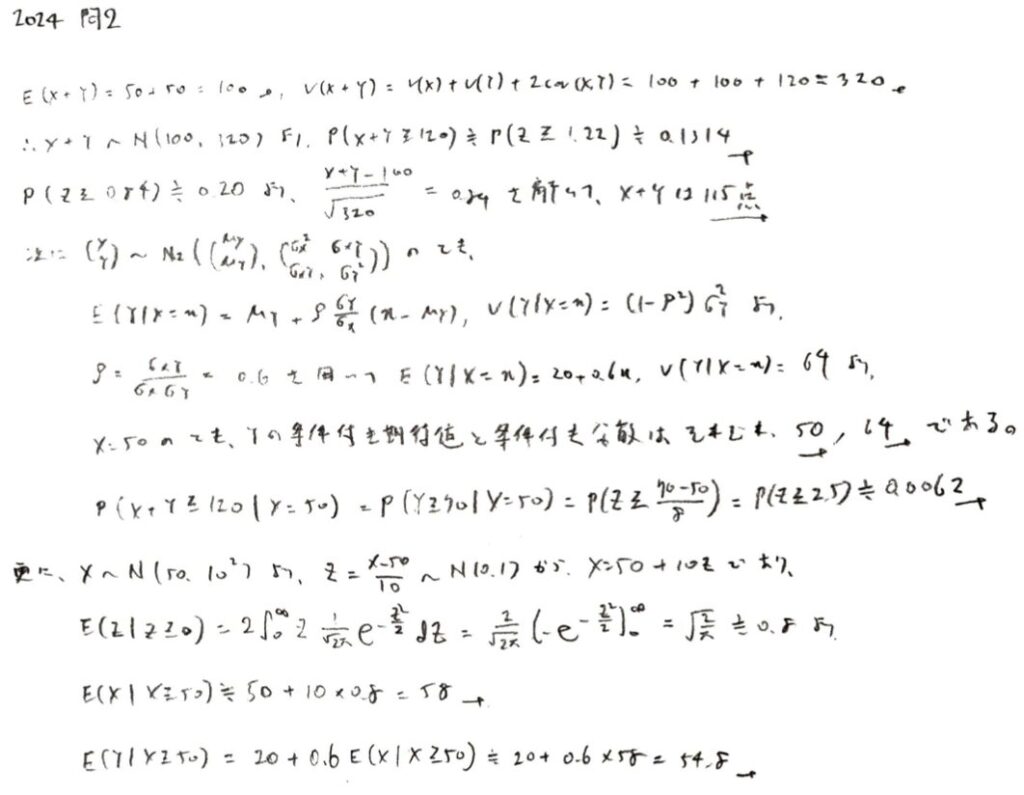 2024 問2
E(X+Y) = 50+50 = 100, V(X+Y) = V(X)+V(Y)+2cov(X,Y) = 100 + 100 + 120 = 320
∴ X+Y ~ N(100, 320) より, P(X+Y≧120) ≒ P(Z≧1.22) ≒ 0.1314
P(Z≧0.84) ≒ 0.20 より, (X+Y-100)/√320 = 0.84 を解いて, X+Yは115点
次に (X Y) ~ N2((μX μY), (σX² σXY σXY, σY²)) のとき,
E(Y|X=x) = μY + ρ σY/σX (x-μX), V(Y|X=x) = (1-ρ²)σY² より,
ρ = σXY/(σXσY) = 0.6 を用いて E(Y|X=x) = 20+0.6x, V(Y|X=x) = 64 より,
X=50のとき、Yの条件付き期待値と条件付き分散はそれぞれ, 50, 64である。
P(X+Y≧120|X=50) = P(Y≧70|X=50) = P(Z≧(70-50)/8) = P(Z≧2.5) ≒ 0.0062
更に, X~N(50, 10²) より, Z = (X-50)/10 ~ N(0,1) から, X=50+10Z であり,
E(Z|Z≧0) = 2∫₀^∞ z 1/√2π e^(-z²/2) dz = 2/√2π [-e^(-z²/2)]₀^∞ = √(2/π) ≒ 0.8 より
E(X|X≧50) ≒ 50 + 10×0.8 = 58
E(Y|X≧50) = 20 + 0.6E(X|X≧50) ≒ 20 + 0.6×58 = 54.8